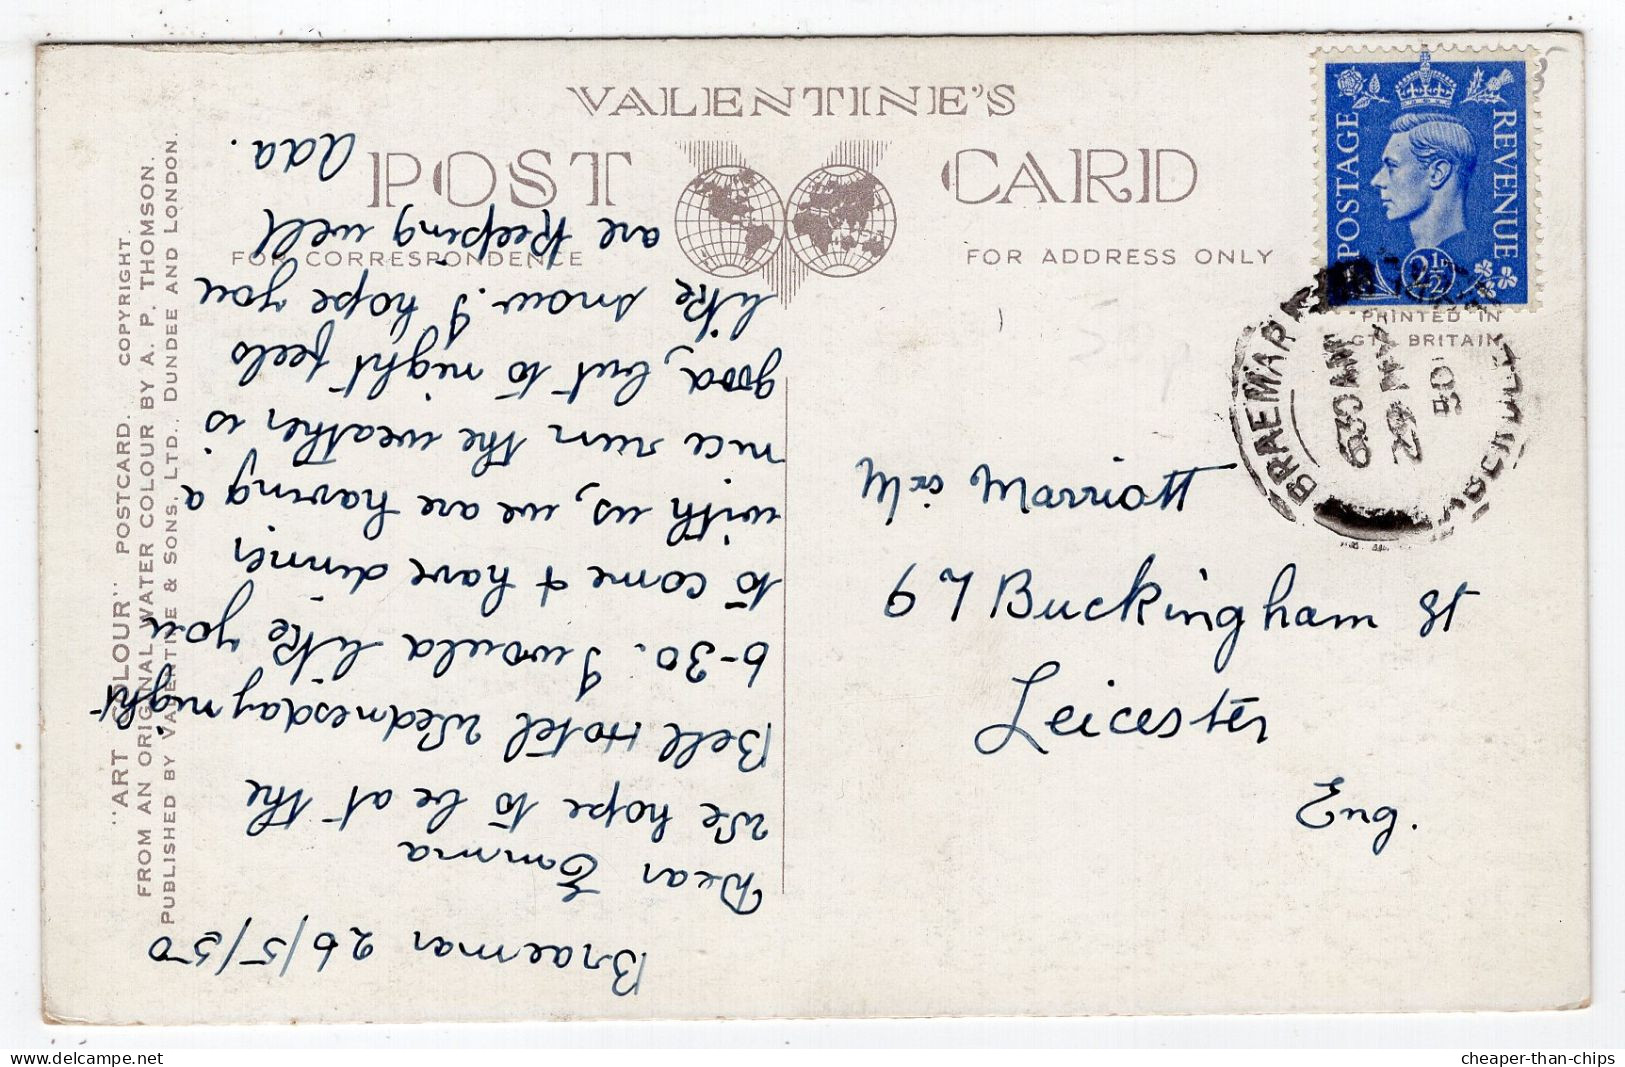 VALENTINE'S
POST CARD
FOR CORRESPONDENCE
FOR ADDRESS ONLY
"ART COLOUR" POSTCARD. COPYRIGHT.
FROM AN ORIGINAL WATER COLOUR BY A. P. THOMSON.
PUBLISHED BY VALENTINE & SONS, LTD., DUNDEE AND LONDON.
Braemar 26/5/50
Dear Emma
We hope to be at the
Bell Hotel Wednesday night
6-30. I would like you
to come & have dinner
with us, we are having a
nice run the weather is
good, but to night feels
like snow. I hope you
are keeping well
Ada.
POSTAGE REVENUE
2½D
PRINTED IN
GT. BRITAIN
BRAEMAR
630AM
29 MY
50
Marriott
67 Buckingham St
Leicester
Eng.
cheaper-than-chips